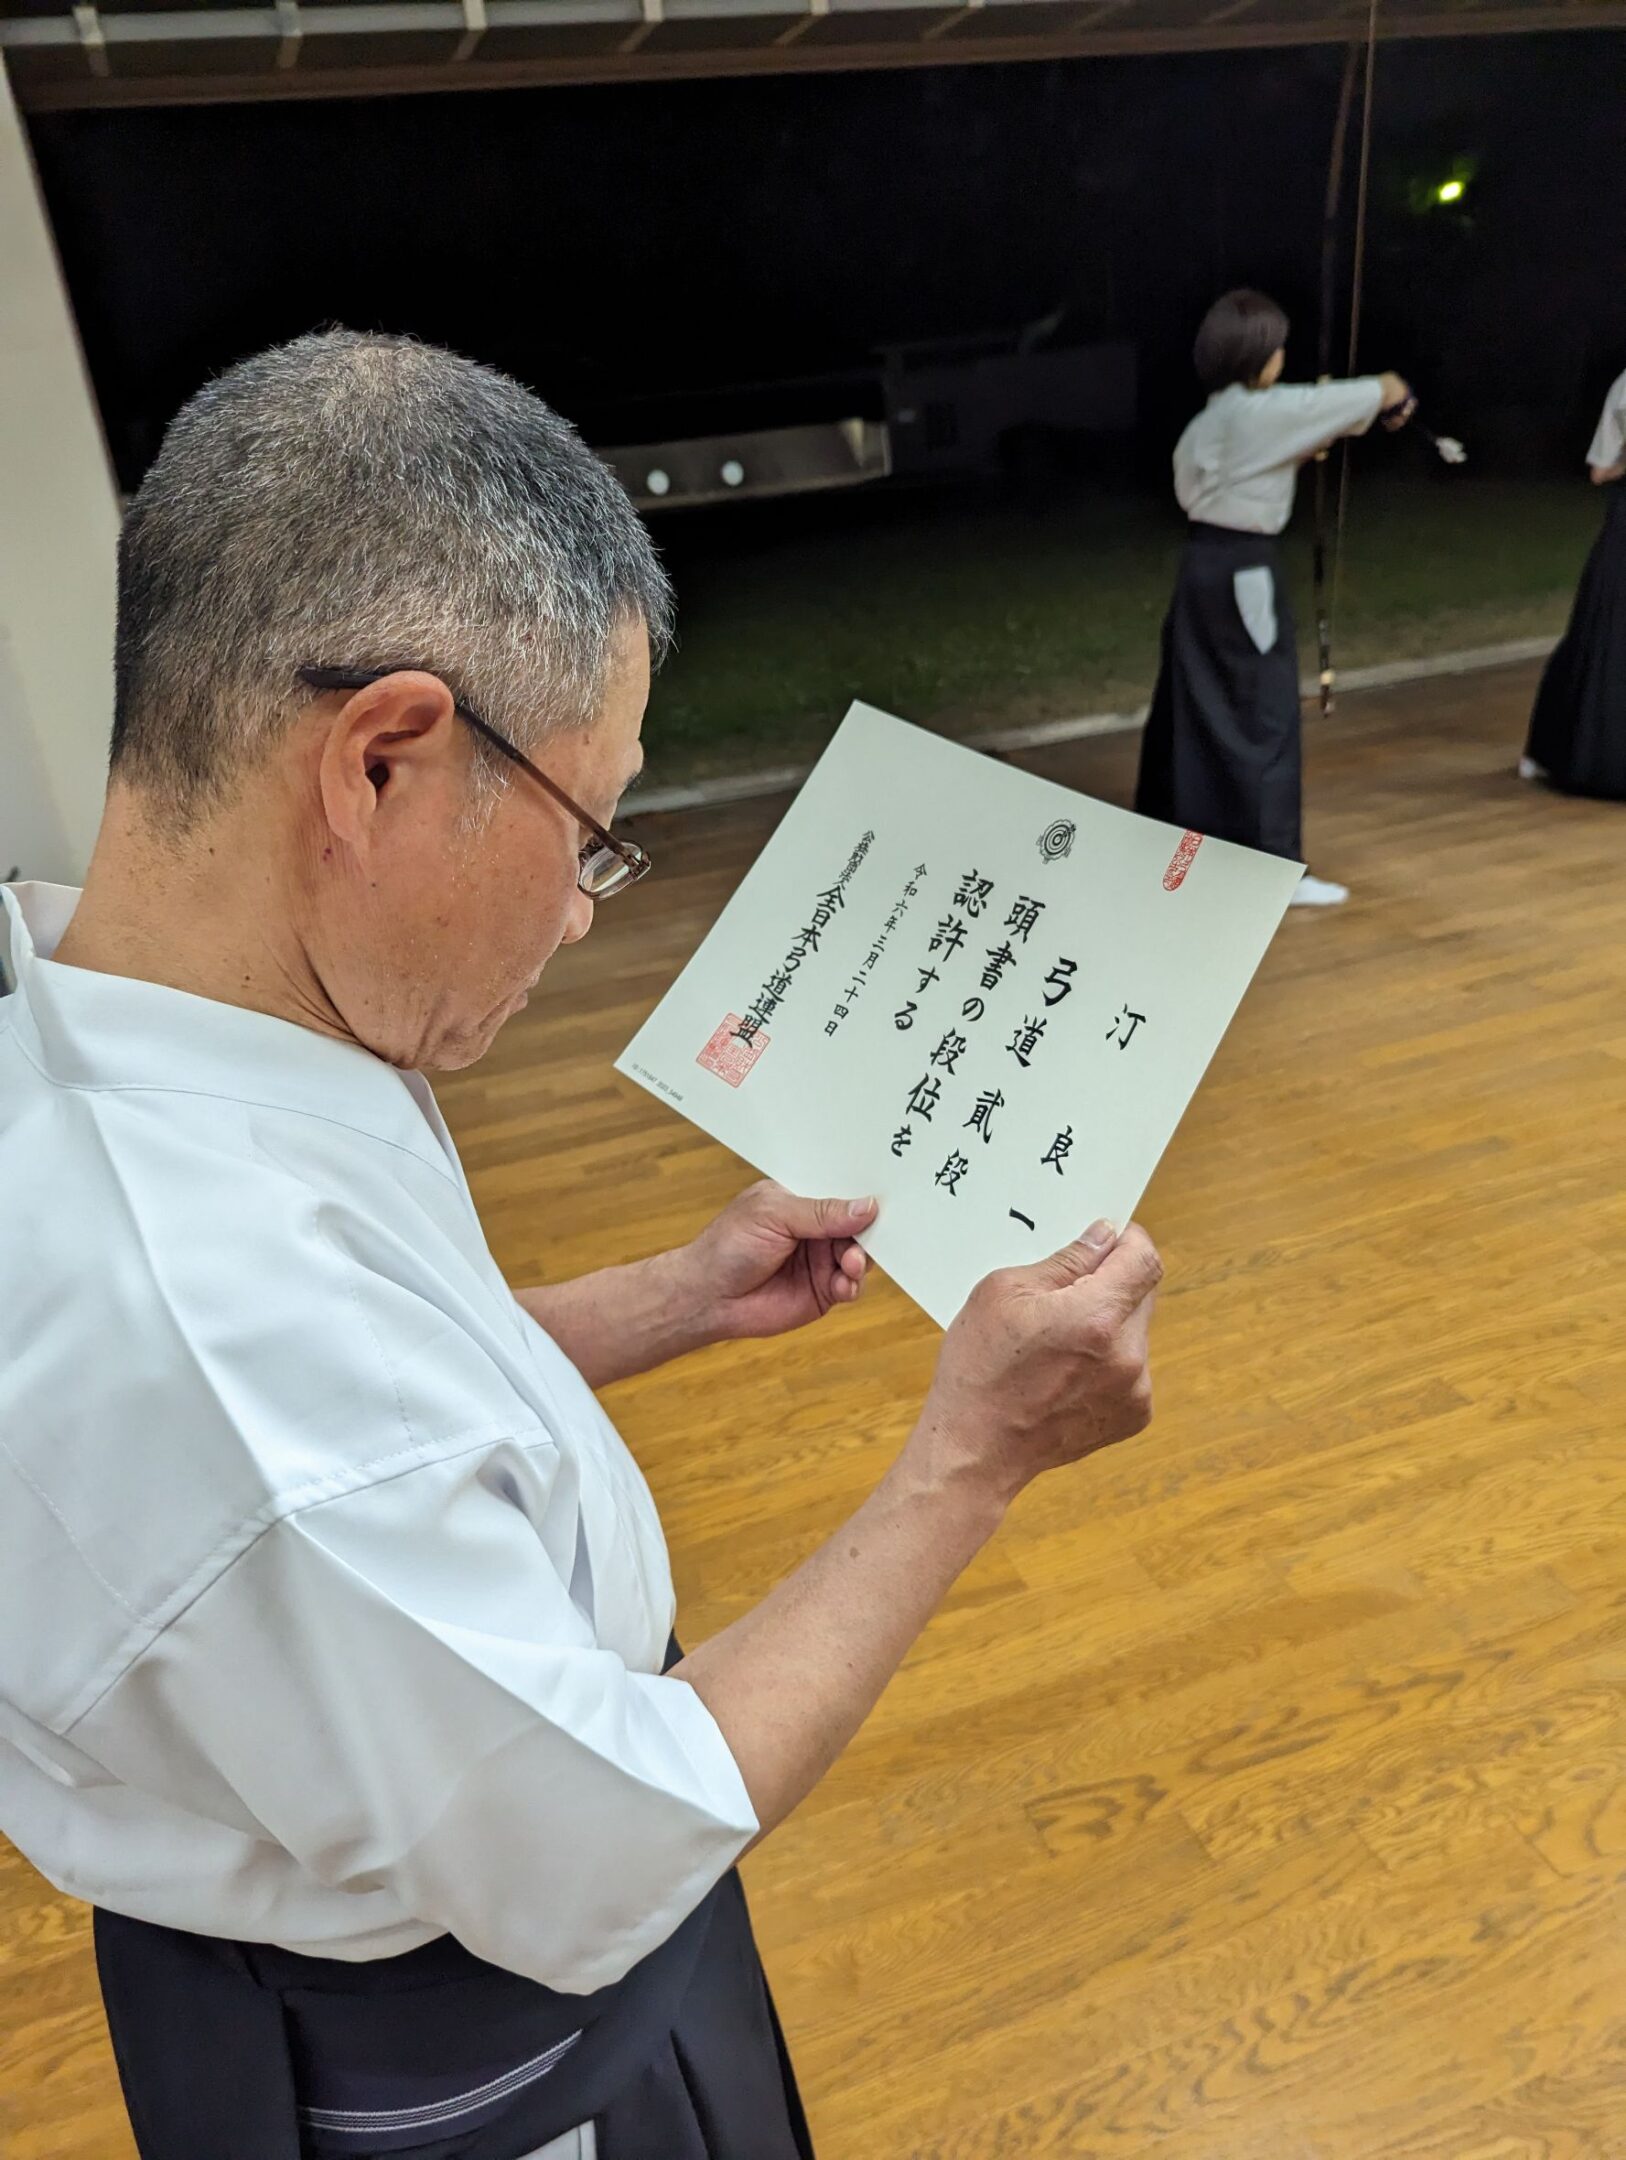 汀 良一
弓道 貳段
頭書の段位を
認許する
令和六年三月二十四日
公益財団法人 全日本弓道連盟